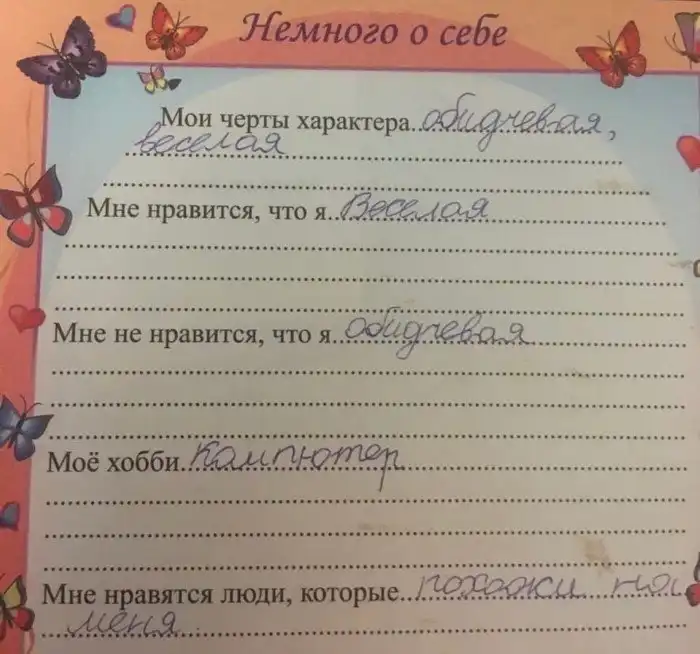 Немного о себе
Мои черты характера обидчевая,
веселая
Мне нравится, что я Веселая
Мне не нравится, что я обидчевая
Моё хобби Кампютер
Мне нравятся люди, которые похожи на
меня